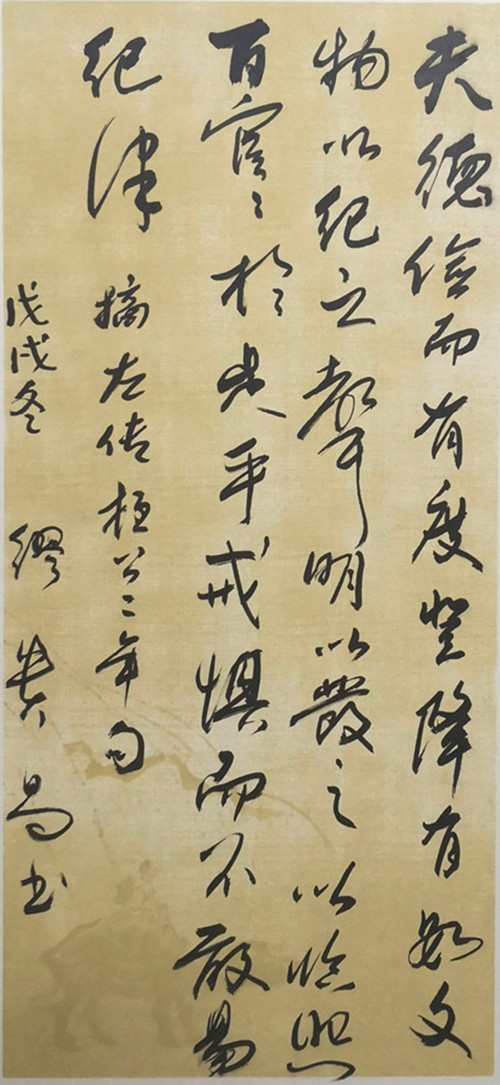 夫德俭而有度登降有数文
物以纪之聲明以發之以临照
百官百官於是乎戒惧而不敢易
纪律 摘左传桓公二年句
戊戌冬 缪贵昌书